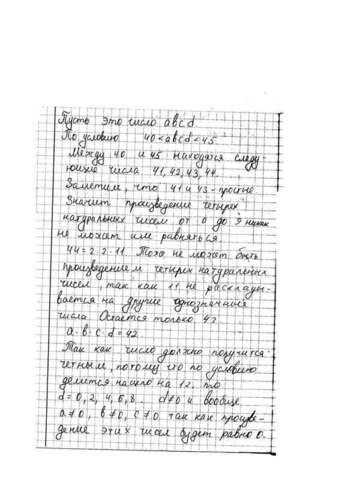 Пусть это число abcd.
По условию 40 < abcd < 45.
Между 40 и 45 находятся следу-
ющие числа 41, 42, 43, 44.
Заметим, что 41 и 43 - простые
Значит произведение четырех
натуральных чисел от 0 до 9 никак
не может им равняться.
44 = 2·2·11. Тоже не может быть
произведением четырех натуральных
чисел, так как 11 не расклады-
вается на другие однозначные
числа. Остается только 42
a·b·c·d = 42
Так как число должно получится
четным, потому что по условию
делится нацело на 12, то
d = 0, 2, 4, 6, 8. d≠0 и вообще
a≠0, b≠0, c≠0 так как произве-
дение этих чисел будет равно 0.